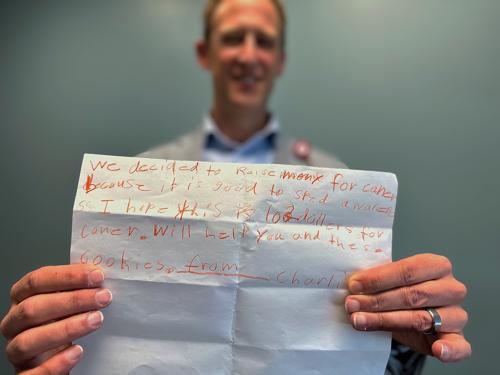 We decided to Raise mony for caner
because it is good to sped awarens
so I hope this is 102 dollers for
caner. Will help you and these
cookies. from Charli